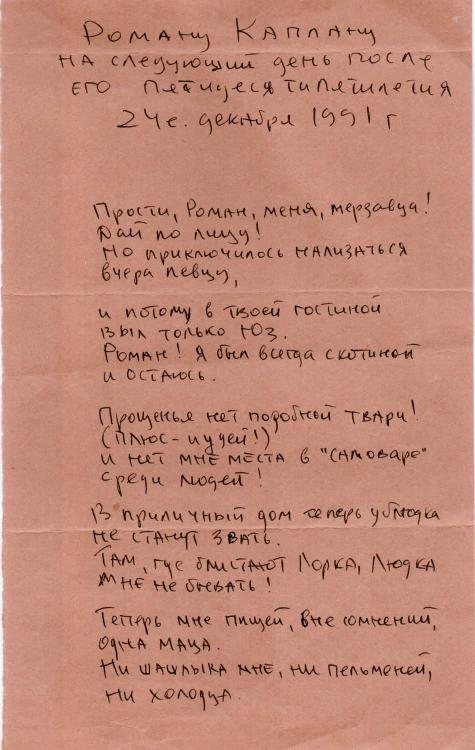 Роману Каплану
на следующий день после
его пятидесятипятилетия
24е. декабря 1991 г
Прости, Роман, меня, мерзавца!
Дай по лицу!
Но приключилось нализаться
вчера певцу,
и потому в твоей гостиной
выл только Юз.
Роман! Я был всегда скотиной
и остаюсь.
Прощенья нет подобной твари!
(плюс-иудей!)
И нет мне места в "Самоваре"
среди людей!
В приличный дом теперь ублюдка
не станут звать.
Там, где блистают Лорка, Людка
мне не бывать!
Теперь мне пищей, вне сомнений,
одна маца.
Ни шашлыка мне, ни пельменей,
ни холодца.